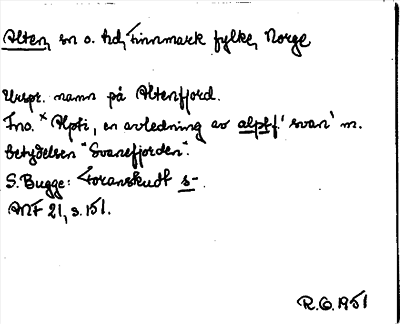 Alten, sn o. hd, Finnmark fylke, Norge
Urspr. namn på Altenfjord.
Fno. *Alpti, en avledning av alpt f. 'svan' m.
betydelsen "Svanefjorden".
S. Bugge: Foranskudt s-.
ANF 21, s. 151.
R.G. 1951